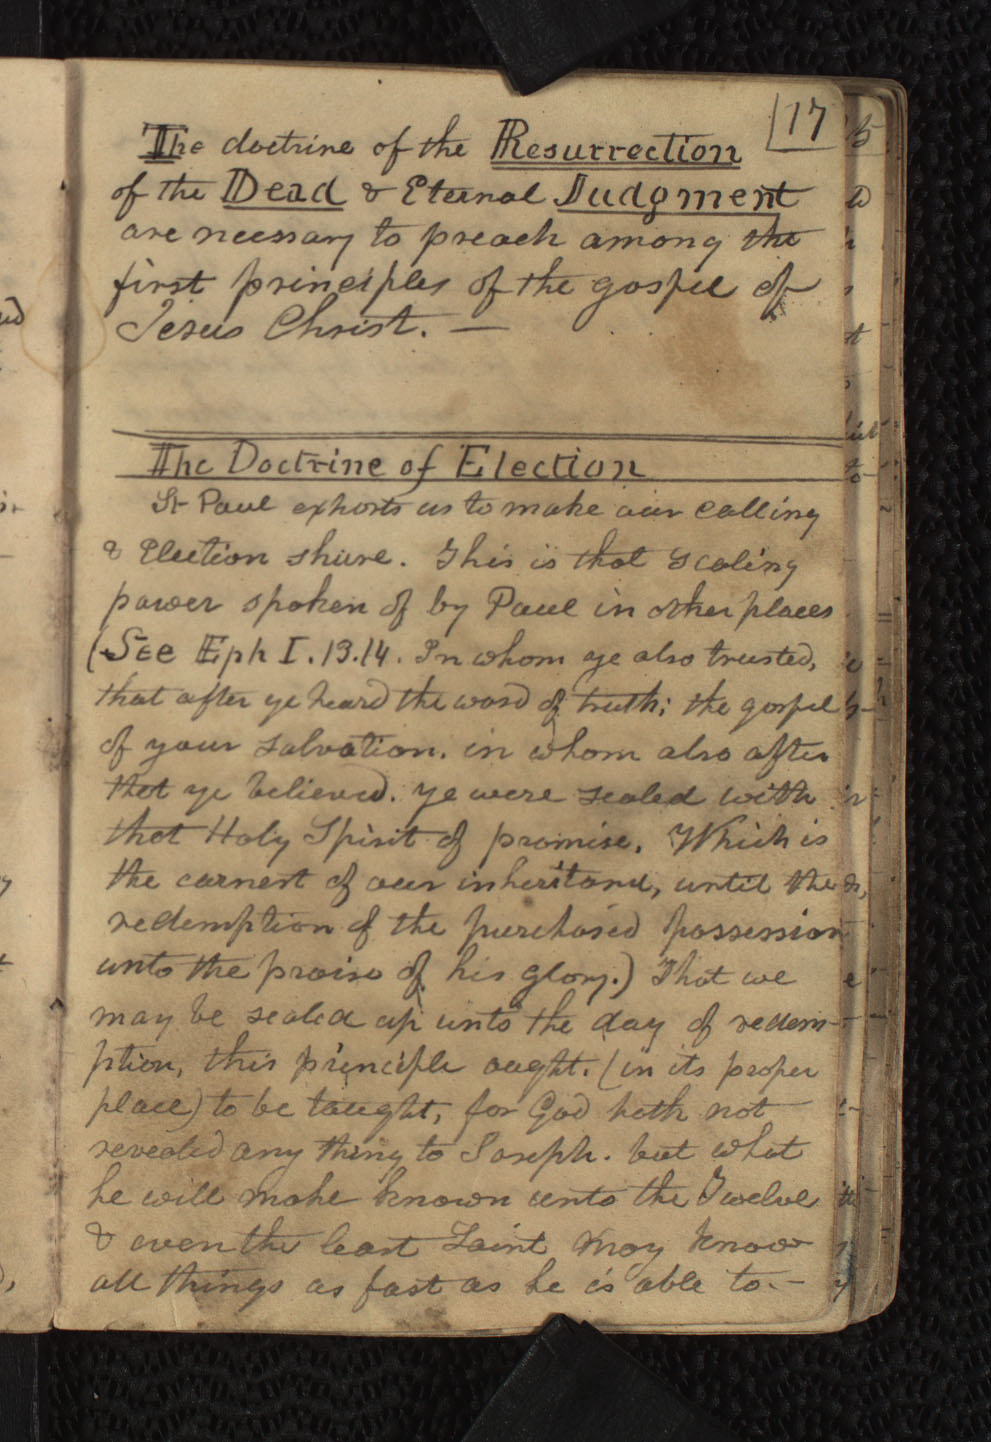 17
The doctrine of the Resurrection
of the Dead & Eternal Judgment
are necessary to preach among the
first principles of the gospel of
Jesus Christ. —
The Doctrine of Election
St Paul exhorts us to make our Calling
& Election shure. This is that Sealing
power spoken of by Paul in other places
(See Eph I. 13.14. In whom ye also trusted,
that after ye heard the word of truth; the gospel
of your salvation. in whom also after
that ye believed. ye were sealed with
that Holy Spirit of promise, Which is
the earnest of our inheritance, until the
redemption of the purchased possession
unto the praise of his glory.) That we
may be sealed up unto the day of redem-
ption, this principle ought. (in its proper
place) to be taught, for God hath not
revealed any thing to Joseph. but what
he will make known unto the Twelve
& even the least Saint may know
all things as fast as he is able to. —